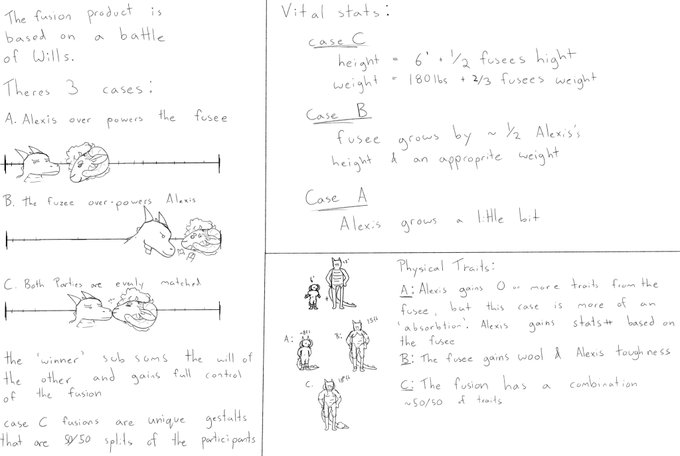 The fusion product is
based on a battle
of Wills.
Theres 3 cases:
A. Alexis over powers the fusee
B. the fuzee over-powers Alexis
C. Both Parties are evenly matched
the 'winner' sub sums the will of
the other and gains full control
of the fusion
case C fusions are unique gestalts
that are 50/50 splits of the participants
Vital stats:
case C
height = 6' + 1/2 fusees hight
weight = 180lbs + 2/3 fusees weight
Case B
fusee grows by ~ 1/2 Alexis's
height & an approprite weight
Case A
Alexis grows a little bit
Physical Traits:
A: Alexis gains 0 or more traits from the
fusee, but this case is more of an
'absorbtion'. Alexis gains stats based on
the fusee
B: The fusee gains wool & Alexis toughness
C: The fusion has a combination
~50/50 of traits
6'
12'
A:
B:
15ft
C.